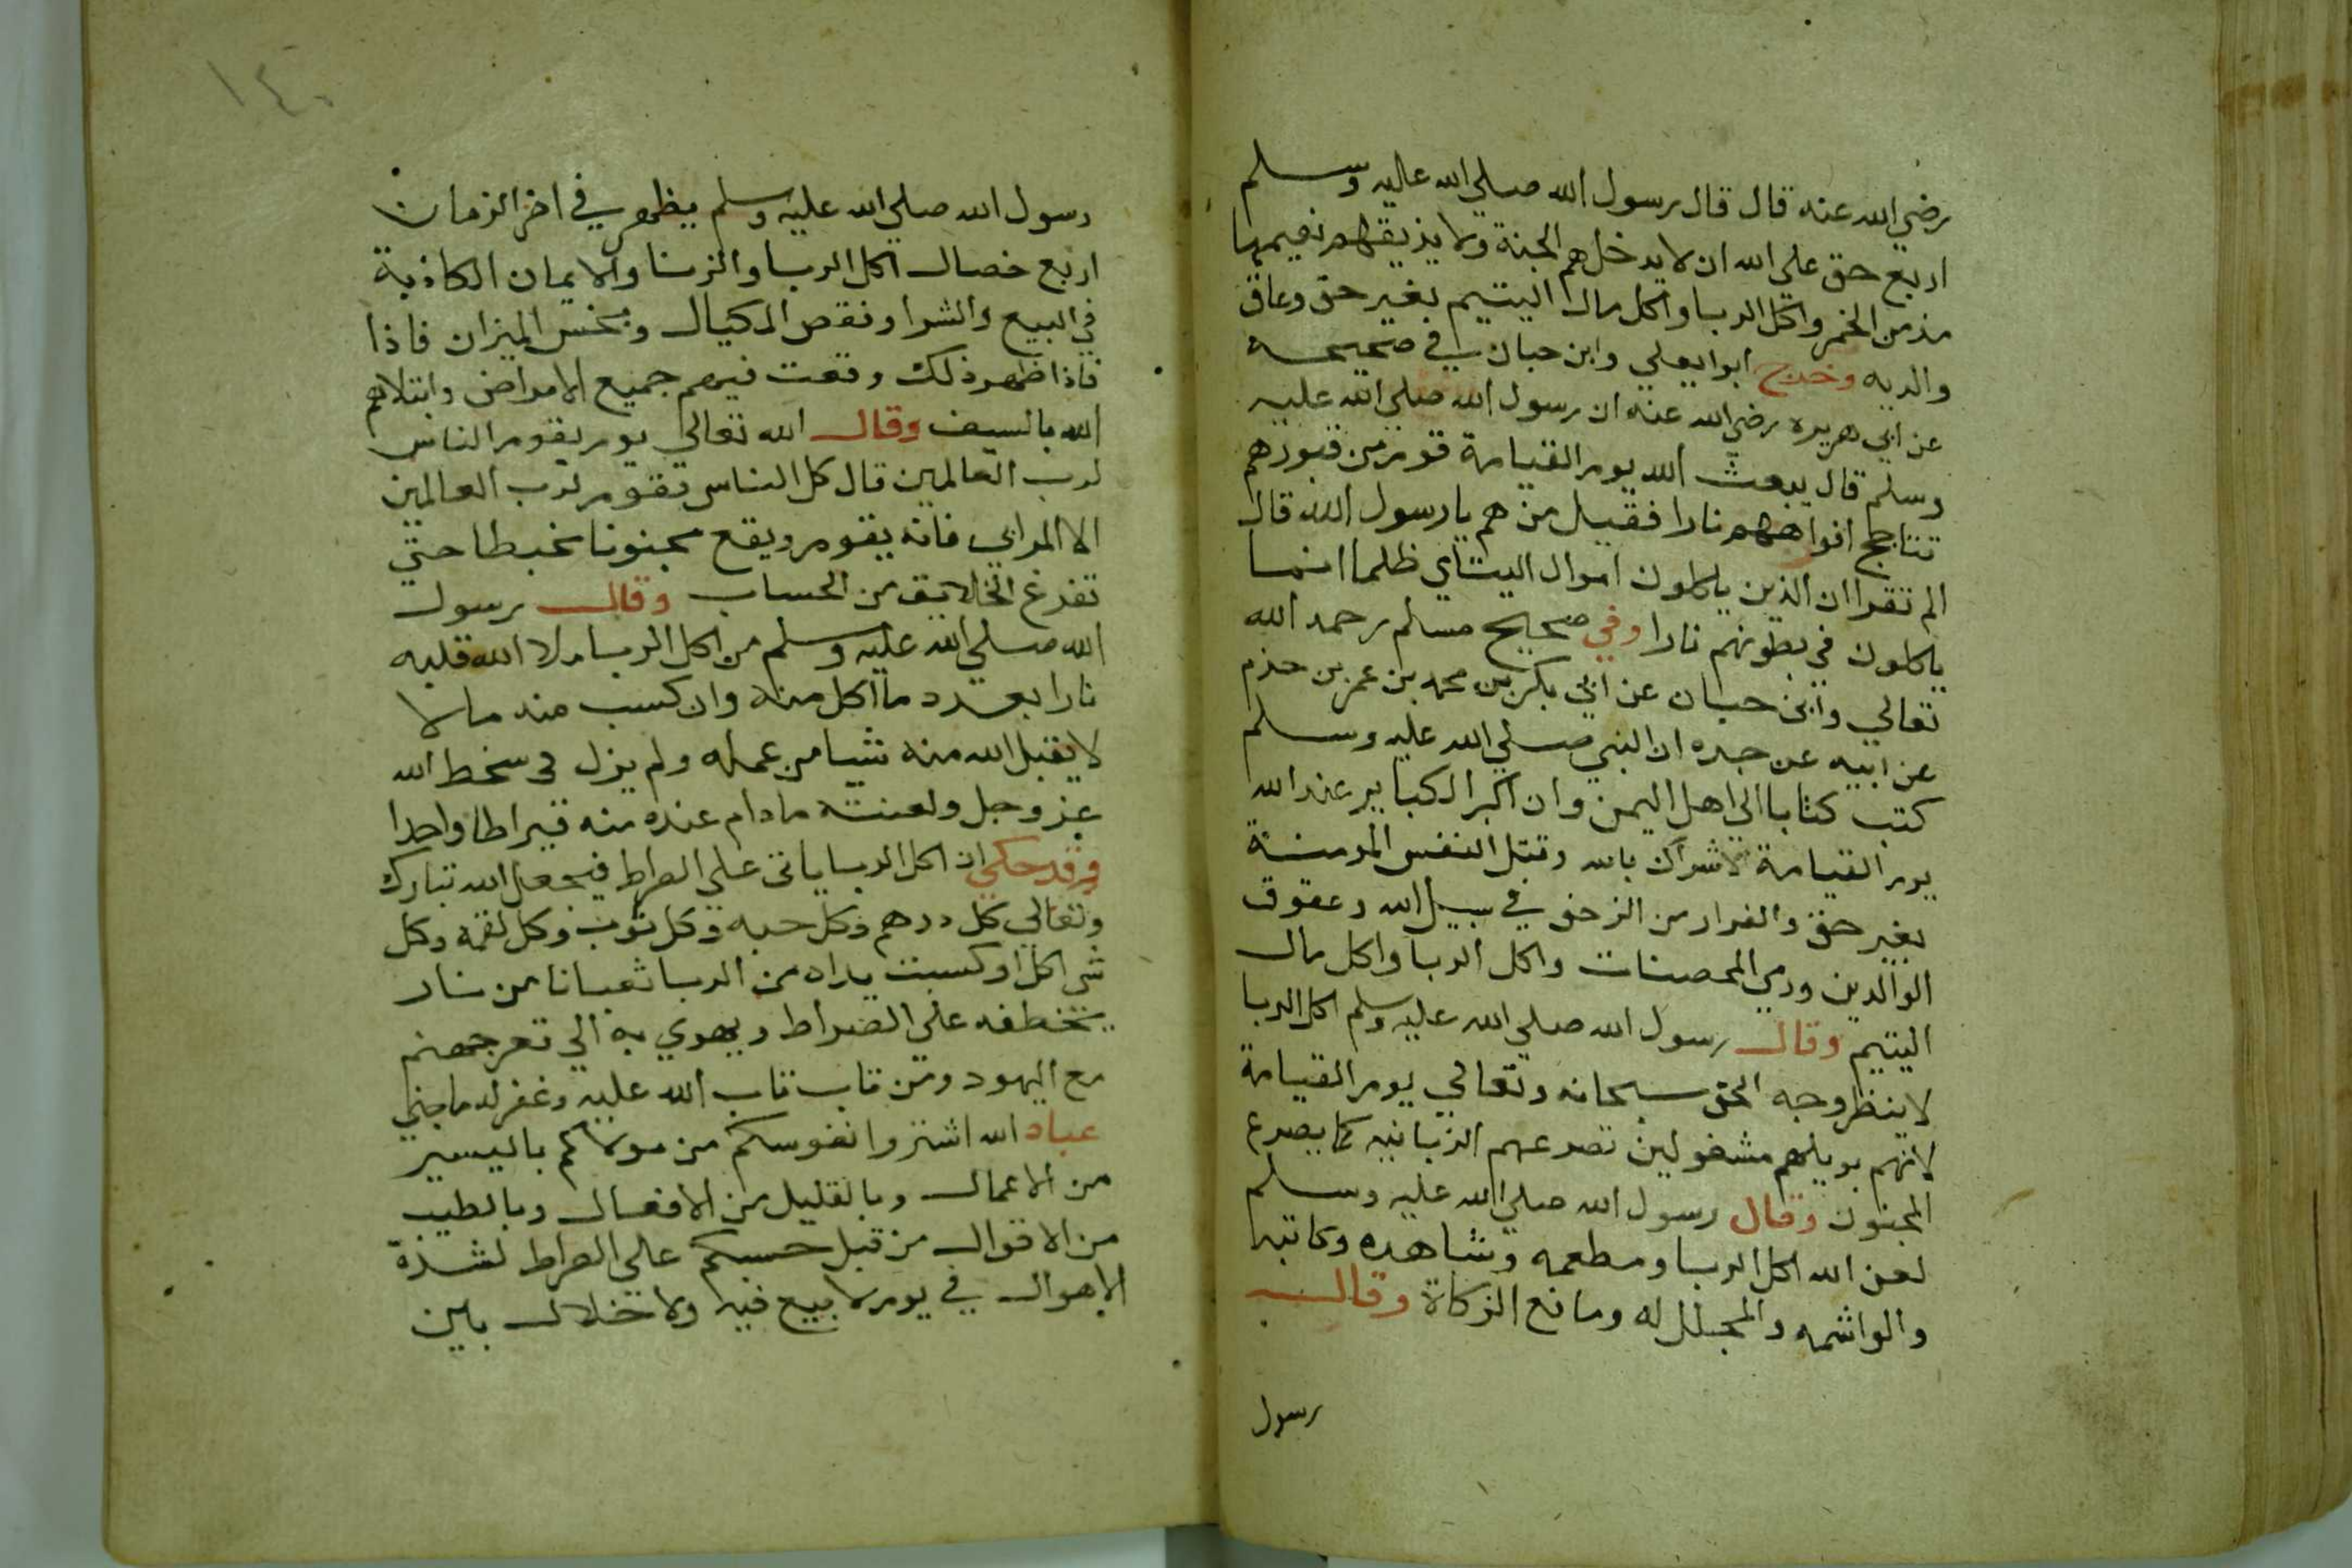 رضي الله عنه قال قال رسول الله صلي الله عليه وسلم
اربع حق علي الله ان لا يدخلهم الجنة ولا يذيقهم نعيمها
مدمن الخمر واكل الربا واكل مال اليتيم بغير حق وعاق
والديه وخرج ابوا يعلي وابن حبان في صحيحه
عن ابي هريره رضي الله عنه ان رسول الله صلي الله عليه
وسلم قال يبعث الله يوم القيامة قوم من قبورهم
تتاجج افواههم نارا فقيل من هم يا رسول الله قال
الم تقرا ان الذين ياكلون اموال اليتامي ظلما انما
ياكلون في بطونهم نارا وفي صحيح مسلم رحمه الله
تعالي وابن حبان عن ابي بكر بن محمد بن عمر بن حزم
عن ابيه عن جده ان النبي صلي الله عليه وسلم
كتب كتابا الي اهل اليمن وان اكبر الكباير عند الله
يوم القيامة الاشراك بالله وقتل النفس المومنة
بغير حق والفرار من الزحف في سبيل الله وعقوق
الوالدين ورمي المحصنات واكل الربا واكل مال
اليتيم وقال رسول الله صلي الله عليه وسلم اكل الربا
لا ينظر وجه الحق سبحانه وتعالي يوم القيامة
لانهم بويلهم مشغولين تصرعهم الزبانيه كما يصرع
المجنون وقال رسول الله صلي الله عليه وسلم
لعن الله اكل الربا ومطعمه وشاهده وكاتبه
والواشمه والمحلل له ومانع الزكاة وقال
رسول
١٤٠
رسول الله صلي الله عليه وسلم يظهر في اخر الزمان
اربع خصال اكل الربا والزنا والايمان الكاذبة
في البيع والشرا ونقص المكيال وبخس الميزان فاذا
فاذا ظهر ذلك وقعت فيهم جميع الامراض وابتلاهم
الله بالسيف وقال الله تعالي يوم يقوم الناس
لرب العالمين قال كل الناس تقوم لرب العالمين
الا المرابي فانه يقوم ويقع مجنونا مخبطا حتي
تفرغ الخلايق من الحساب وقال رسول
الله صلي الله عليه وسلم من اكل الربا ملا الله قلبه
نارا بعدد ما اكل منه وان كسب منه مالا
لا يقبل الله منه شيا من عمله ولم يزل في سخط الله
عز وجل ولعنته ما دام عنده منه قيراطا واحدا
وقد حكي ان اكل الربا ياتي علي الصراط فيجعل الله تبارك
وتعالي كل درهم وكل حبه وكل ثوب وكل لقمة وكل
شي اكل او كسبت يداه من الربا ثعبانا من نار
يتخطفه علي الصراط ويهوي به الي قعر جهنم
مع اليهود ومن تاب تاب الله عليه وغفر له ما جني
عباد الله اشتروا انفوسكم من مولاكم باليسير
من الاعمال وبالقليل من الافعال وبالطيب
من الاقوال من قبل حبسكم علي الصراط لشدة
الاهوال في يوم لا بيع فيه ولا خلال بين